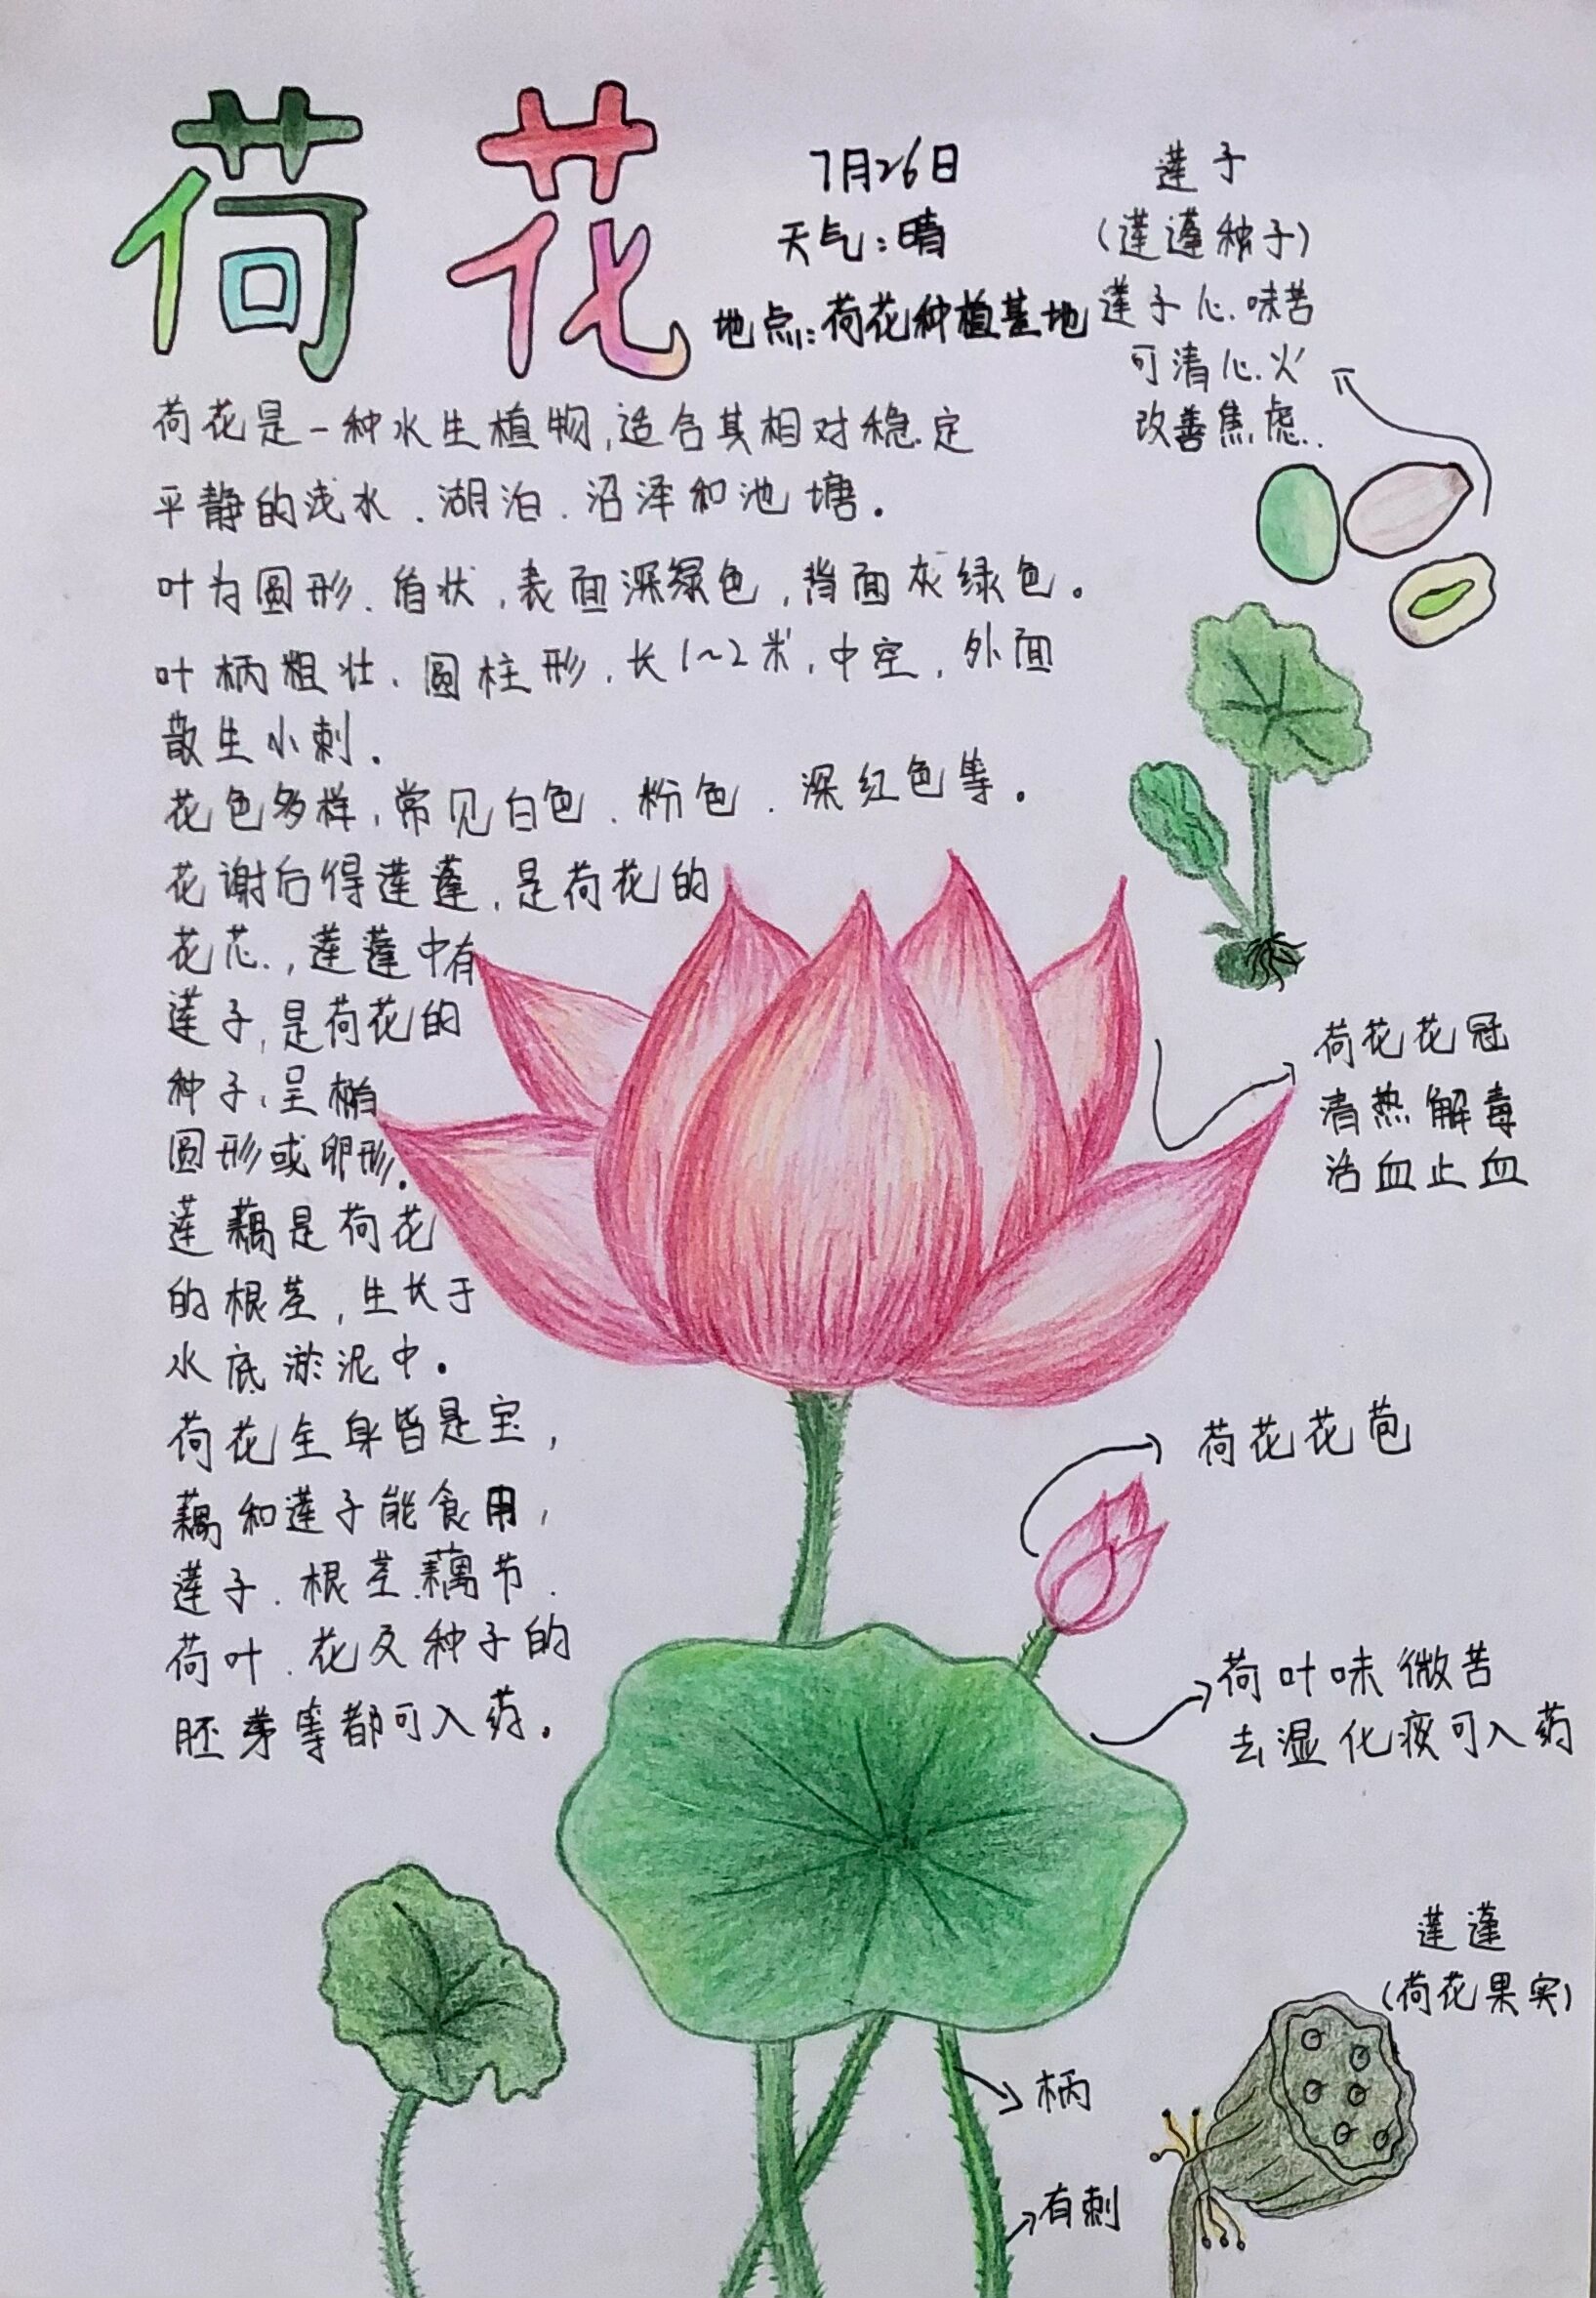 荷花
7月26日
天气:晴
地点:荷花种植基地
莲子
(莲蓬种子)
莲子心.味苦
可清心火
改善焦虑.
荷花是一种水生植物,适合其相对稳定
平静的浅水.湖泊.沼泽和池塘。
叶为圆形.盾状,表面深绿色,背面灰绿色。
叶柄粗壮.圆柱形.长1~2米.中空.外面
散生小刺.
花色多样,常见白色.粉色.深红色等.
花谢后得莲蓬,是荷花的
花芯.,莲蓬中有
莲子,是荷花的
种子,呈椭
圆形或卵形.
莲藕是荷花
的根茎,生长于
水底淤泥中。
荷花全身皆是宝,
藕和莲子能食用,
莲子.根茎.藕节.
荷叶.花及种子的
胚芽等都可入药。
荷花花冠
清热解毒
活血止血
荷花花苞
荷叶味微苦
去湿化痰可入药
莲蓬
(荷花果实)
柄
有刺